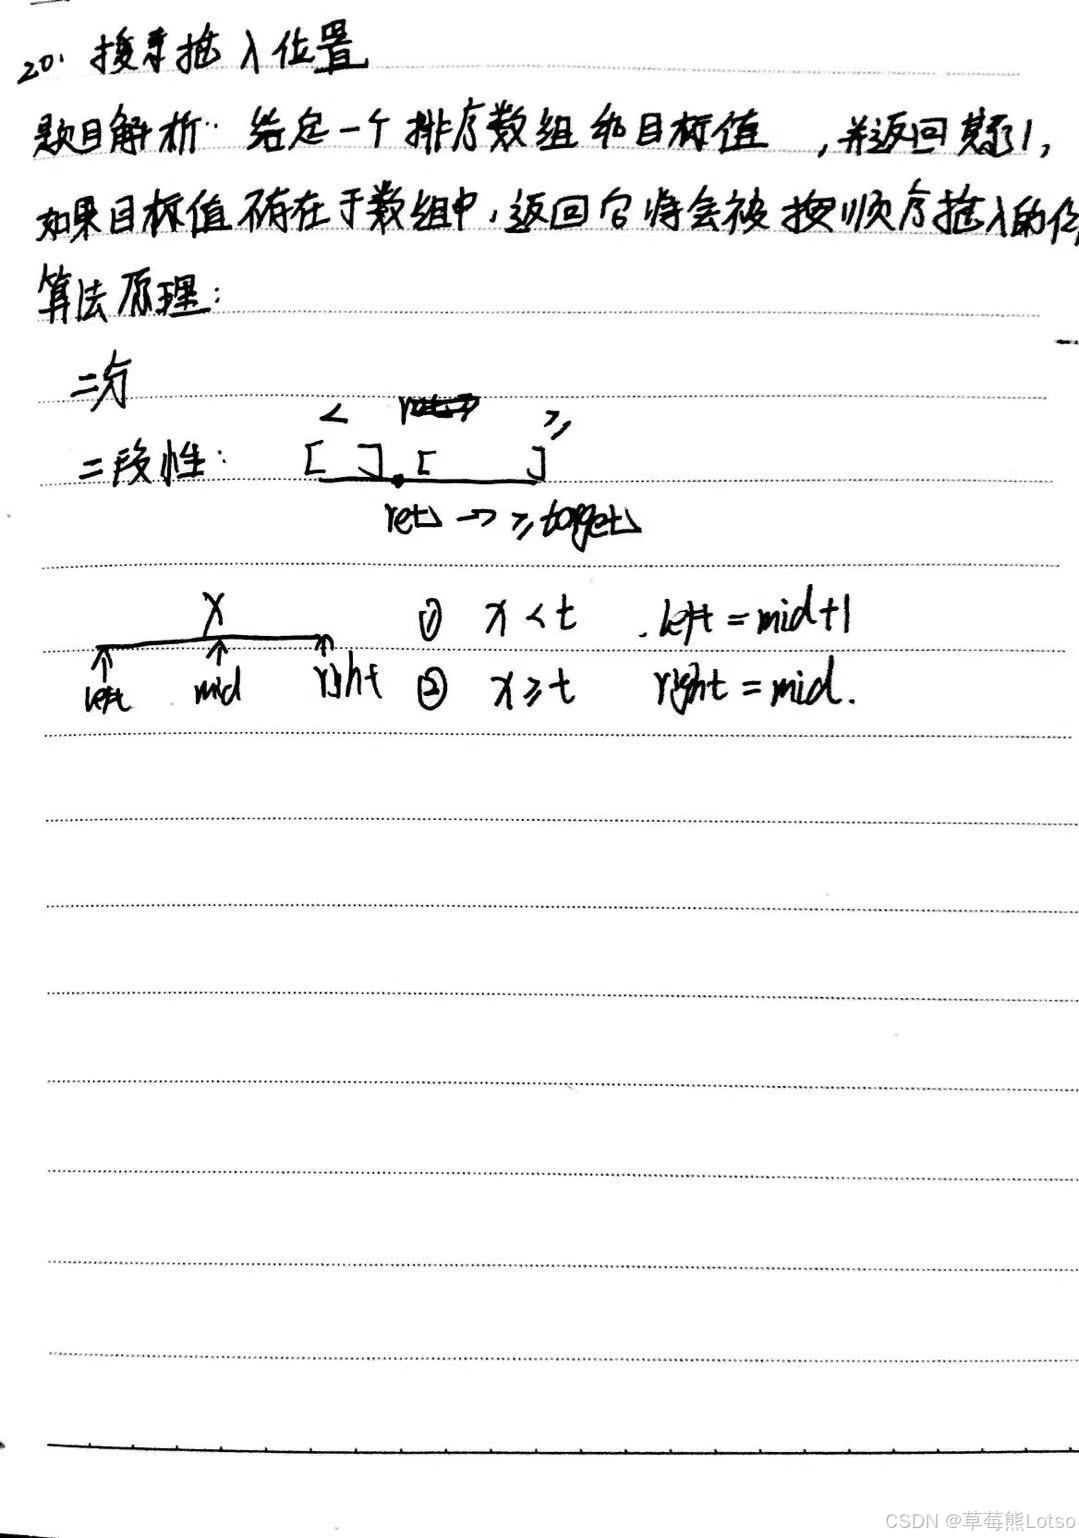 20. 搜索插入位置
题目解析: 给定一个排序数组和目标值 ,并返回其索引,
如果目标值不存在于数组中,返回它将会被按顺序插入的位
算法原理:
二分
< ≥
二段性: [ ] [ ]
ret → ≥target
x ① x < t . left = mid+1
left mid right ② x ≥ t right = mid.
CSDN @草莓熊Lotso